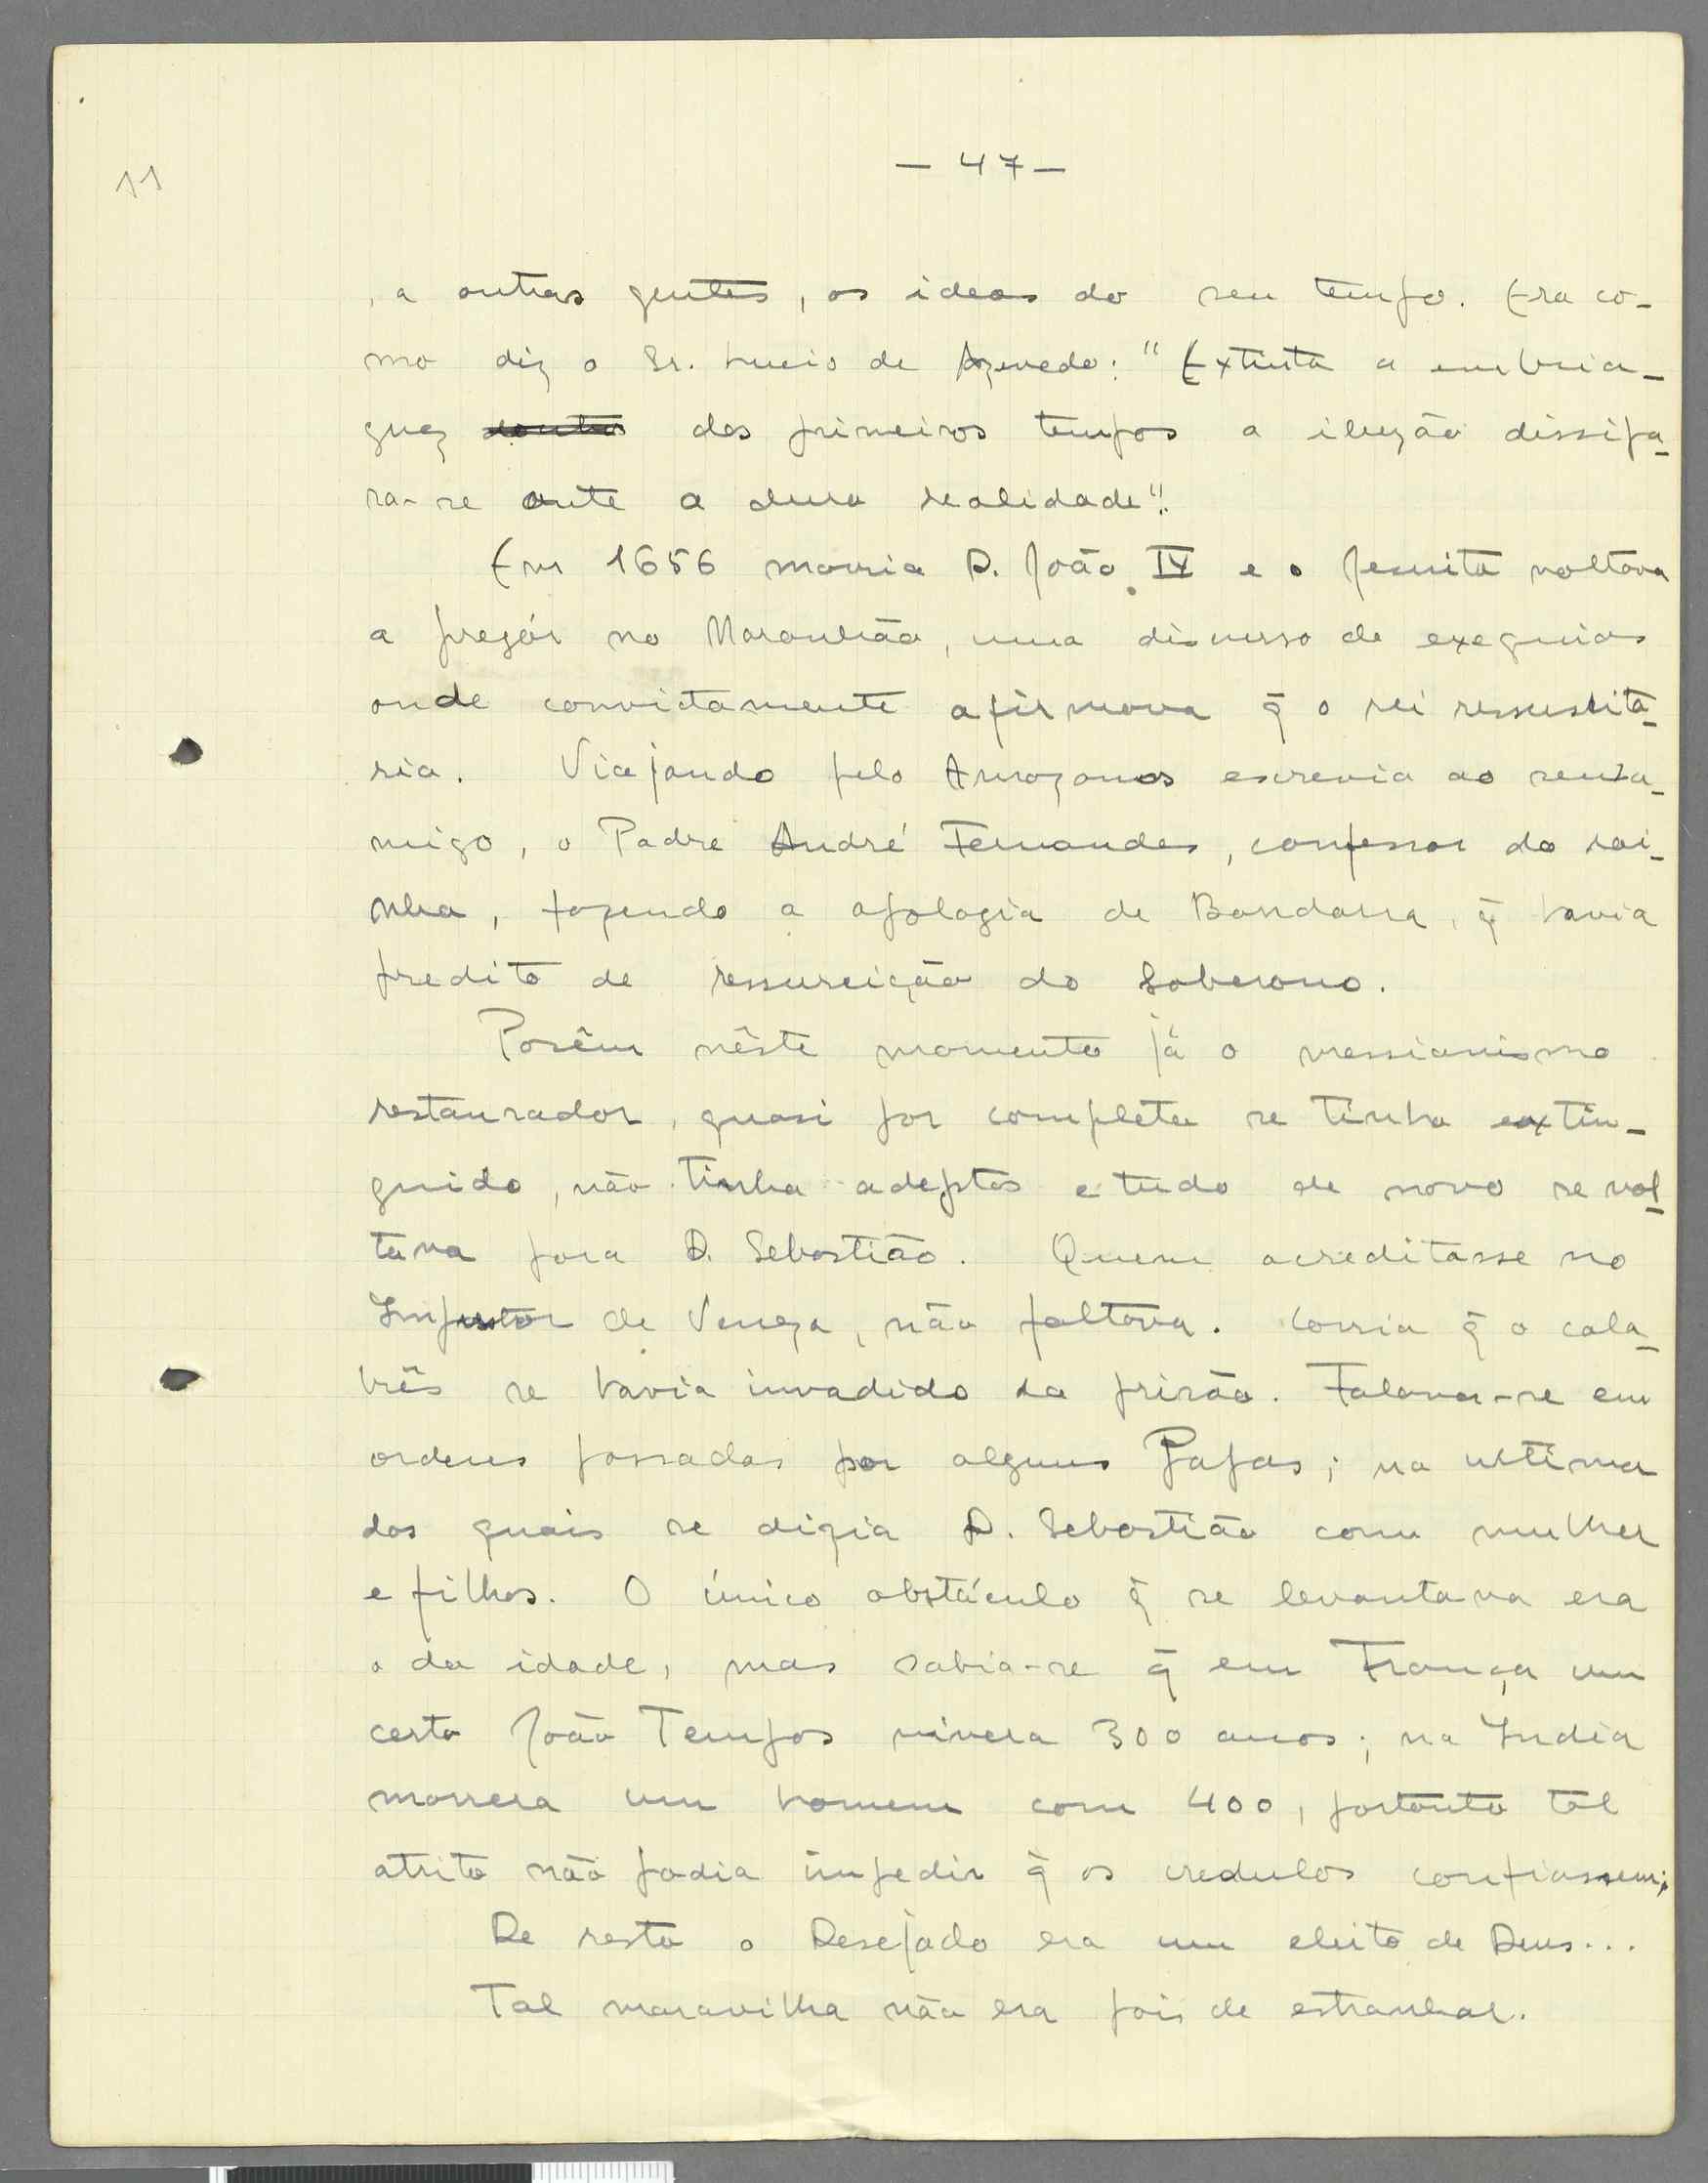 11
— 47 —
, a outras gentes, as ideas do seu tempo. Era co-
mo diz o Sr. Lucio de Azevedo: "Extinta a embria-
guez dos primeiros tempos a iluzão dissipa-
ra-se ante a dura realidade".
Em 1656 morria D. João IV e o Jesuita voltava
a pregár no Maranhão, uma discurso de exequias
onde convictamente afirmava q̃ o rei ressuscita-
ria. Viajando pelo Amazonas escrevia ao seu a-
migo, o Padre André Fernandes, confessor da rai-
nha, fazendo a apologia de Bandarra, q̃ havia
predito de ressureição do Soberano.
Porêm nêste momento já o messianismo
restaurador, quasi por completo se tinha extin-
guido, não tinha adeptos e tudo de novo se vol-
tava para D. Sebastião. Quem acreditasse no
Impustor de Veneza, não faltava. Corria q̃ o cala-
brês se havia invadido da prisão. Falava-se em
ordens passadas por alguns Papas; na ultima
das quais se dizia D. Sebastião com mulher
e filhos. O único obstáculo q̃ se levantava era
o da idade, mas sabia-se q̃ em França um
certo João Tempos vivera 300 anos; na India
morrera um homem com 400, portanto tal
atrito não podia impedir q̃ os credulos confiassem;
De resto o Desejado era um eleito de Deus...
Tal maravilha não era pois de estranhar.